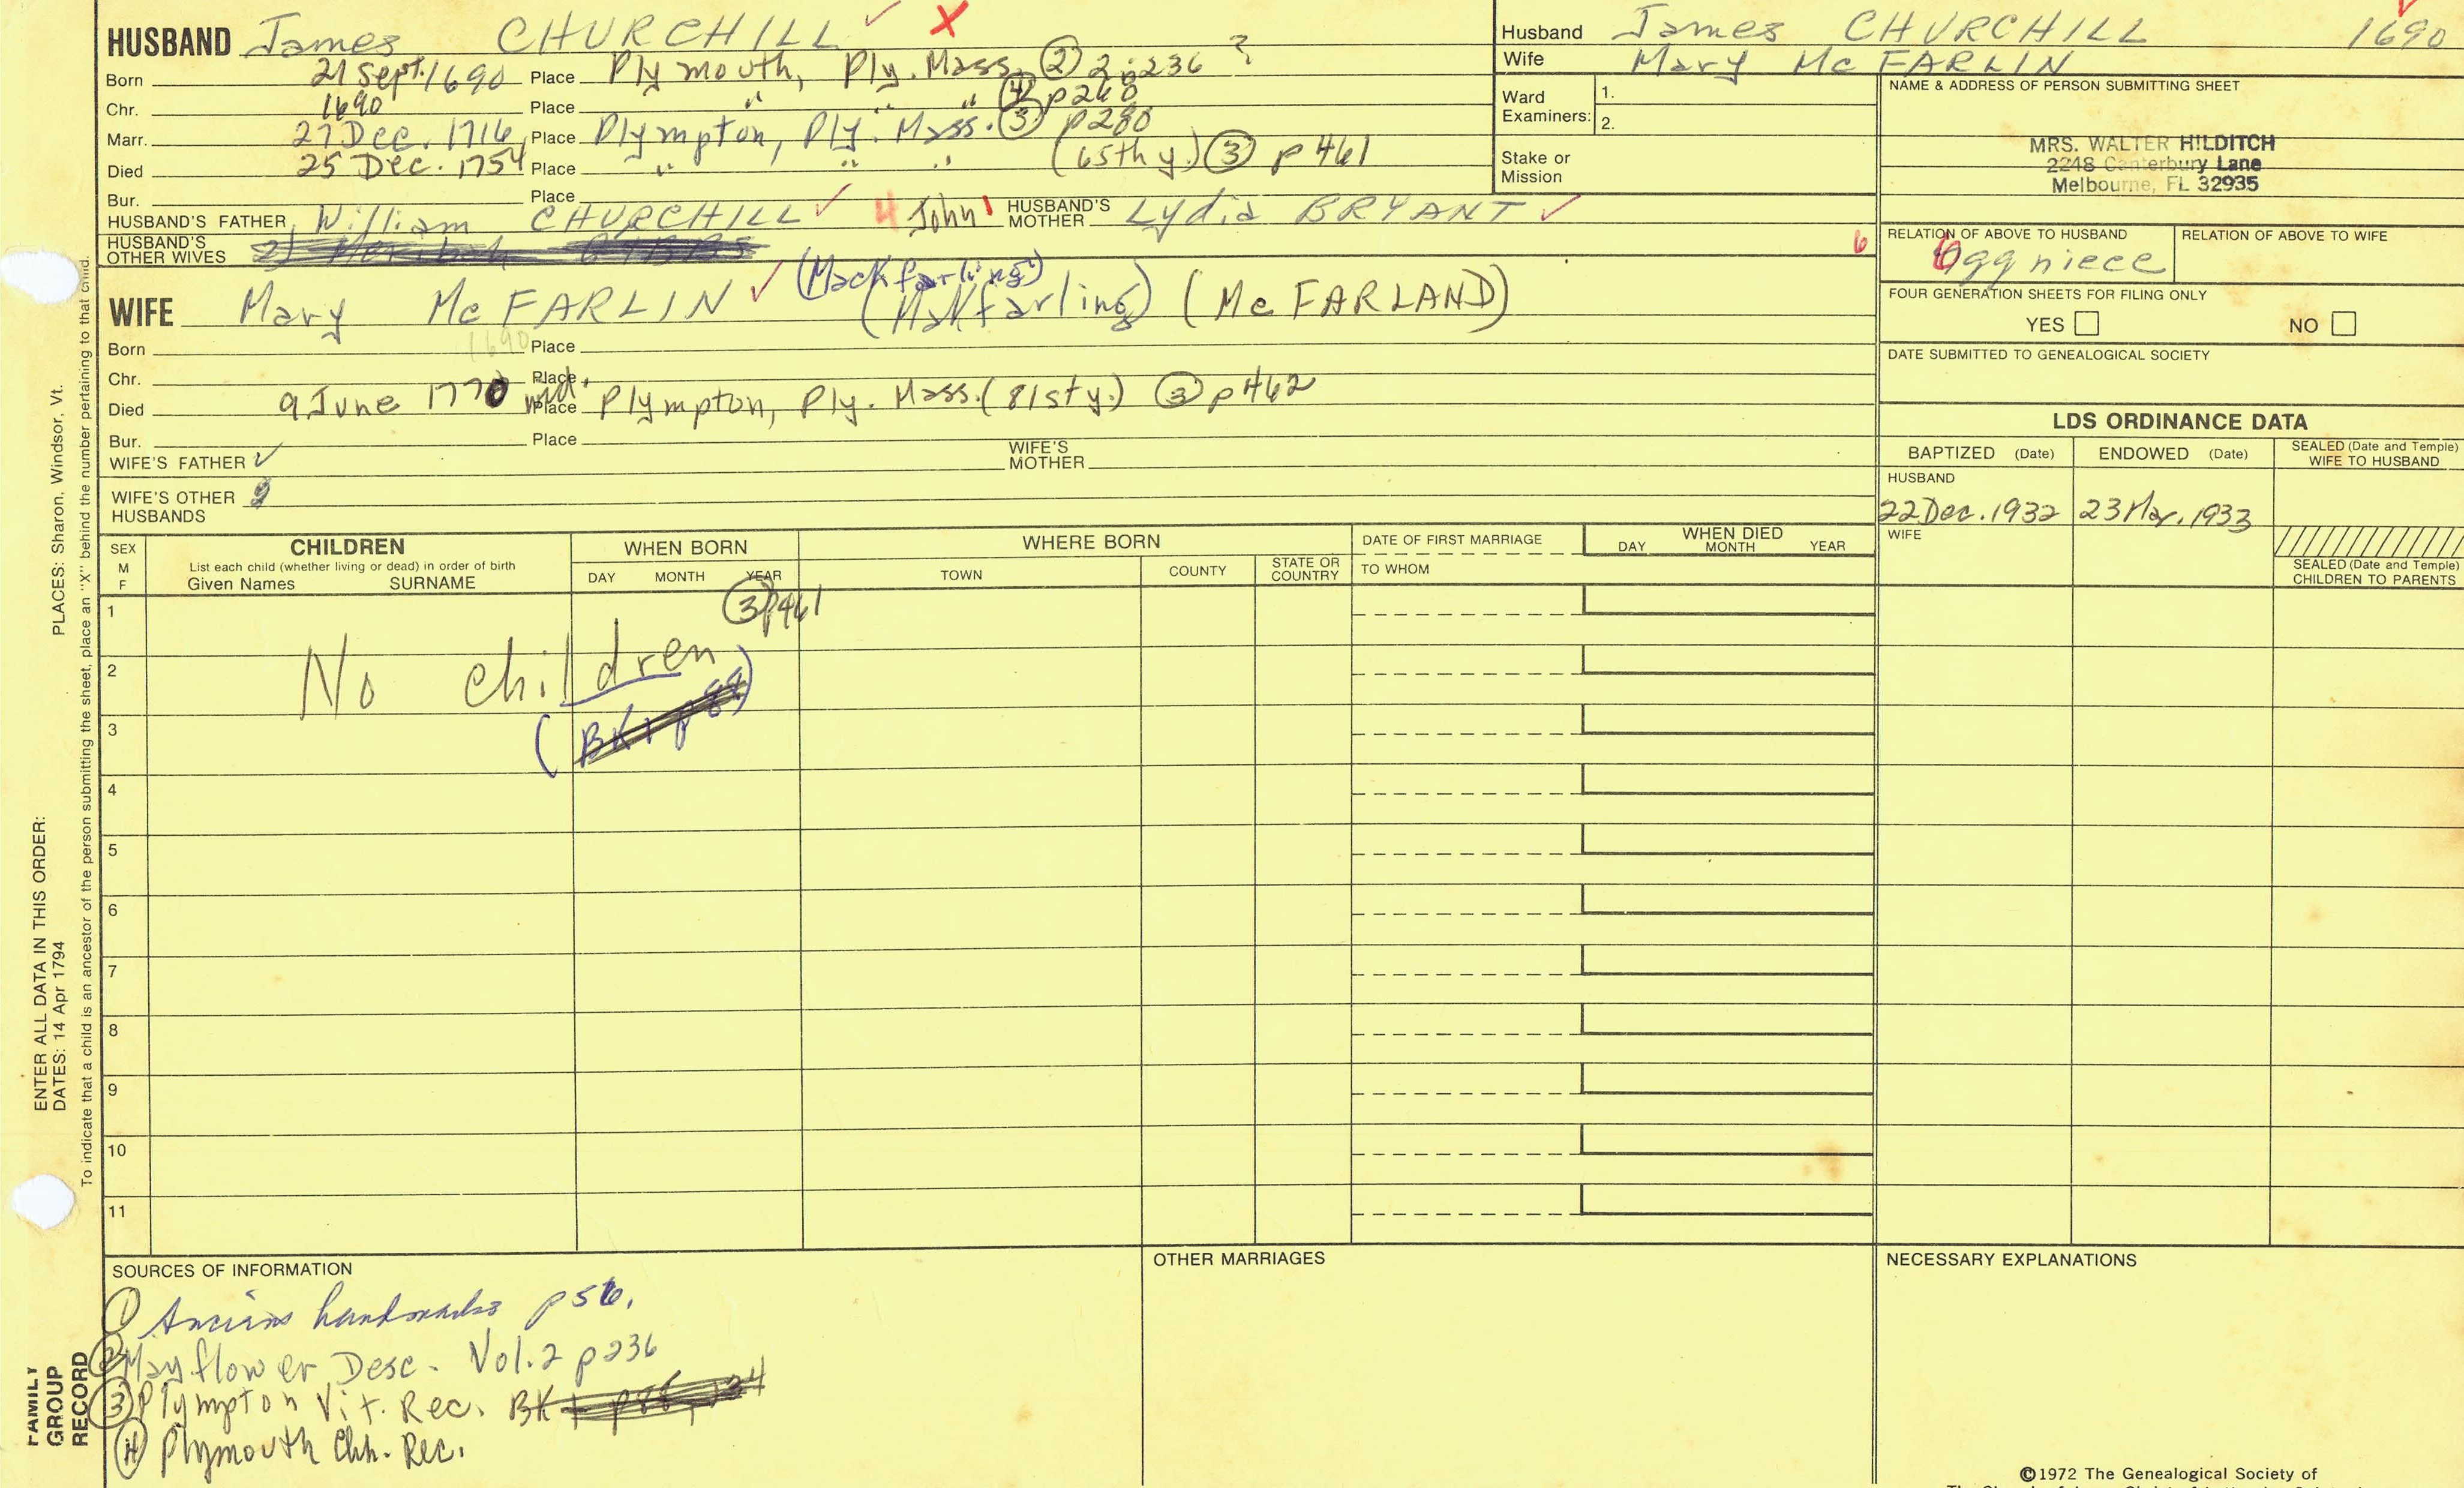 HUSBAND James CHURCHILL ✓ X
Born 21 Sept. 1690 Place Plymouth, Ply. Mass. ② 2:236 ?
Chr. 1690 Place " " " ④ p260
Marr. 27 Dec. 1716 Place Plympton, Ply. Mass. ③ p280
Died 25 Dec. 1754 Place " " " (65th y.) ③ p461
Bur. Place
HUSBAND'S FATHER William CHURCHILL ✓ 4 John 1 HUSBAND'S MOTHER Lydia BRYANT ✓
HUSBAND'S OTHER WIVES
6
(Mackfarling)
WIFE Mary McFARLIN ✓ (Makfarling) (McFARLAND)
Born 1690 Place
Chr. Place
Died 9 June 1770 wid. Place Plympton, Ply. Mass. (81st y.) ③ p462
Bur. Place
WIFE'S FATHER ✓ WIFE'S MOTHER
WIFE'S OTHER HUSBANDS
Husband James CHURCHILL 1690
Wife Mary McFARLIN
Ward Examiners: 1.
2.
Stake or Mission
NAME & ADDRESS OF PERSON SUBMITTING SHEET
MRS. WALTER HILDITCH
2248 Canterbury Lane
Melbourne, FL 32935
RELATION OF ABOVE TO HUSBAND RELATION OF ABOVE TO WIFE
6ggniece
FOUR GENERATION SHEETS FOR FILING ONLY
YES NO
DATE SUBMITTED TO GENEALOGICAL SOCIETY
LDS ORDINANCE DATA
BAPTIZED (Date) ENDOWED (Date) SEALED (Date and Temple) WIFE TO HUSBAND
HUSBAND
22 Dec. 1932 23 Mar. 1933
WIFE
SEALED (Date and Temple) CHILDREN TO PARENTS
SEX M F
CHILDREN
List each child (whether living or dead) in order of birth
Given Names SURNAME
WHEN BORN
DAY MONTH YEAR
WHERE BORN
TOWN COUNTY STATE OR COUNTRY
DATE OF FIRST MARRIAGE
TO WHOM
WHEN DIED
DAY MONTH YEAR
1 ③ p461
2 No children
3
4
5
6
7
8
9
10
11
SOURCES OF INFORMATION
① Ancient landmarks
② Mayflower Desc. Vol. 2 p236
③ Plympton Vit. Rec.
④ Plymouth Chh. Rec.
OTHER MARRIAGES
NECESSARY EXPLANATIONS
©1972 The Genealogical Society of
PLACES: Sharon, Windsor, Vt.
To indicate that a child is an ancestor of the person submitting the sheet, place an "X" behind the number pertaining to that child.
ENTER ALL DATA IN THIS ORDER:
DATES: 14 Apr 1794
FAMILY GROUP RECORD